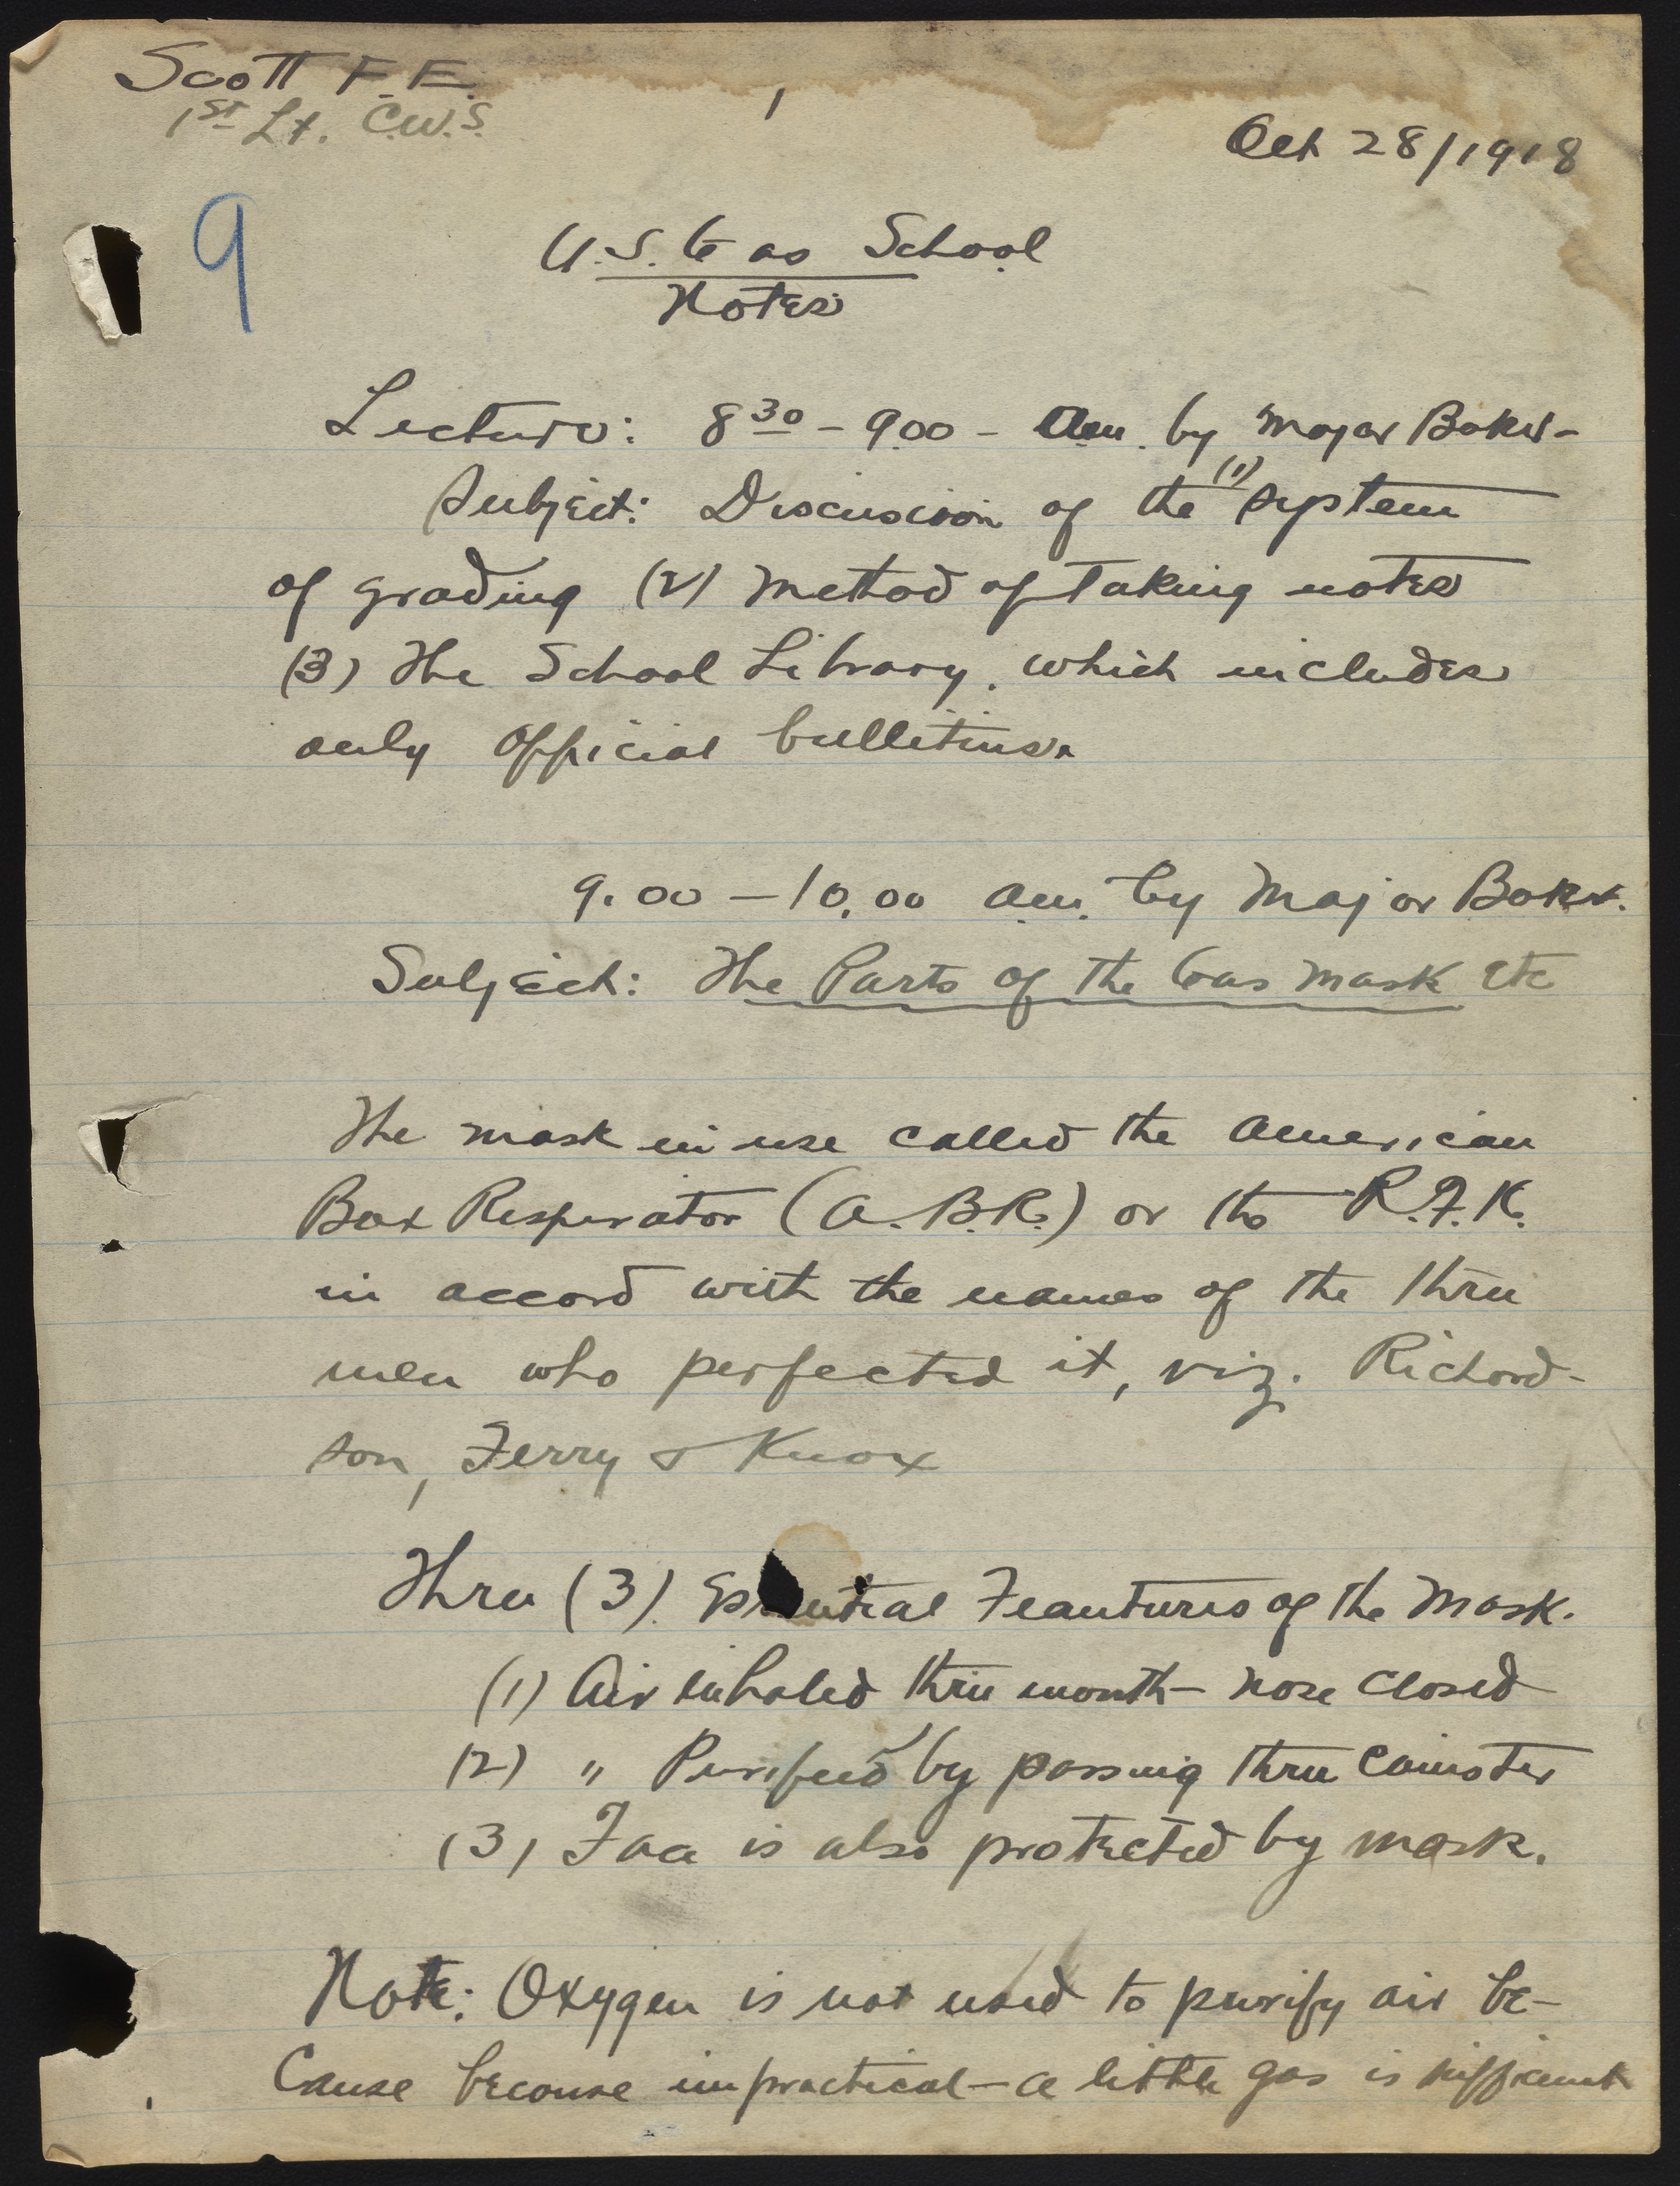 Scott F.E.
1st Lt. C.W.S.
1
Oct 28/1918
9
U.S. Gas School
Notes
Lecture: 8 30 - 9.00 - a.m. by Major Baker -
Subject: Discussion of the (1) system
of grading (2) Method of taking notes
(3) The School Library, which includes
only official bulletins.
9.00 - 10.00 a.m. by Major Baker.
Subject: The Parts of the Gas Mask etc
The mask in use called the American
Box Respirator (A.B.R.) or the R.F.K.
in accord with the names of the three
men who perfected it, viz. Richard-
son, Ferry & Knox
Three (3) Essential Feautures of the Mask.
(1) Air inhaled thru mouth - nose closed
(2) " Purified by passing thru Canister
(3) Face is also protected by mask.
Note: Oxygen is not used to purify air be-
cause because impractical - a little gas is sufficient